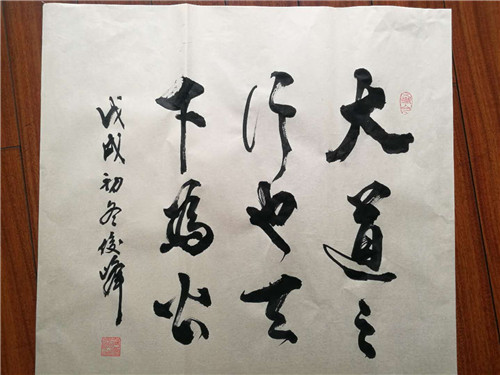 大道之
行也天
下為公
戊戌初冬俊峰